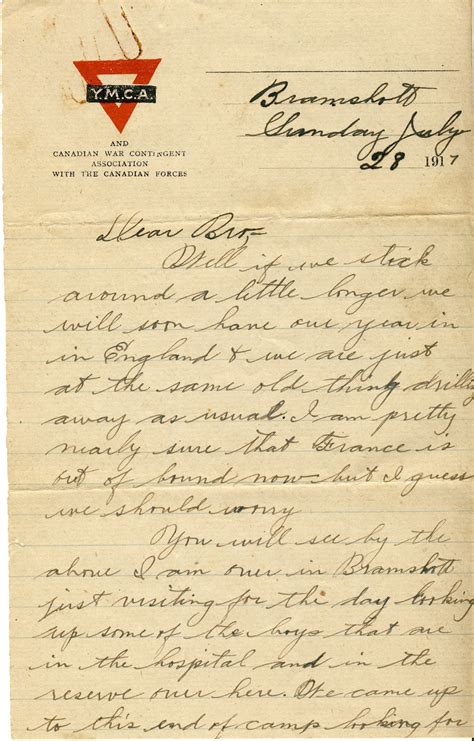 Y.M.C.A.
AND
CANADIAN WAR CONTINGENT
ASSOCIATION
WITH THE CANADIAN FORCES
Bramshott
Sunday July
28 1917
Dear Bro,-
Well if we stick
around a little longer we
will soon have our year in
in England & we are just
at the same old thing drilly
away as usual. I am pretty
nearly sure that France is
out of bound now but I guess
we should worry
You will see by the
above I am over in Bramshott
just visiting for the day looking
up some of the boys that are
in the hospital and in the
reserve over here. We came up
to this end of camp looking for